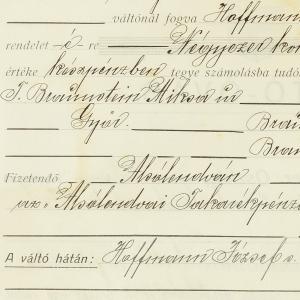 váltónál fogva Hoffmann
rendelet -é- re Négyezer kor
értéke készpénzben tegye számolásba tudó
T. Braunstein Miksa úr
Gyár. Brau
Brau
Fizetendő Alsólendván
az Alsólendvai Takarékpénz
A váltó hátán: Hoffmann József s.